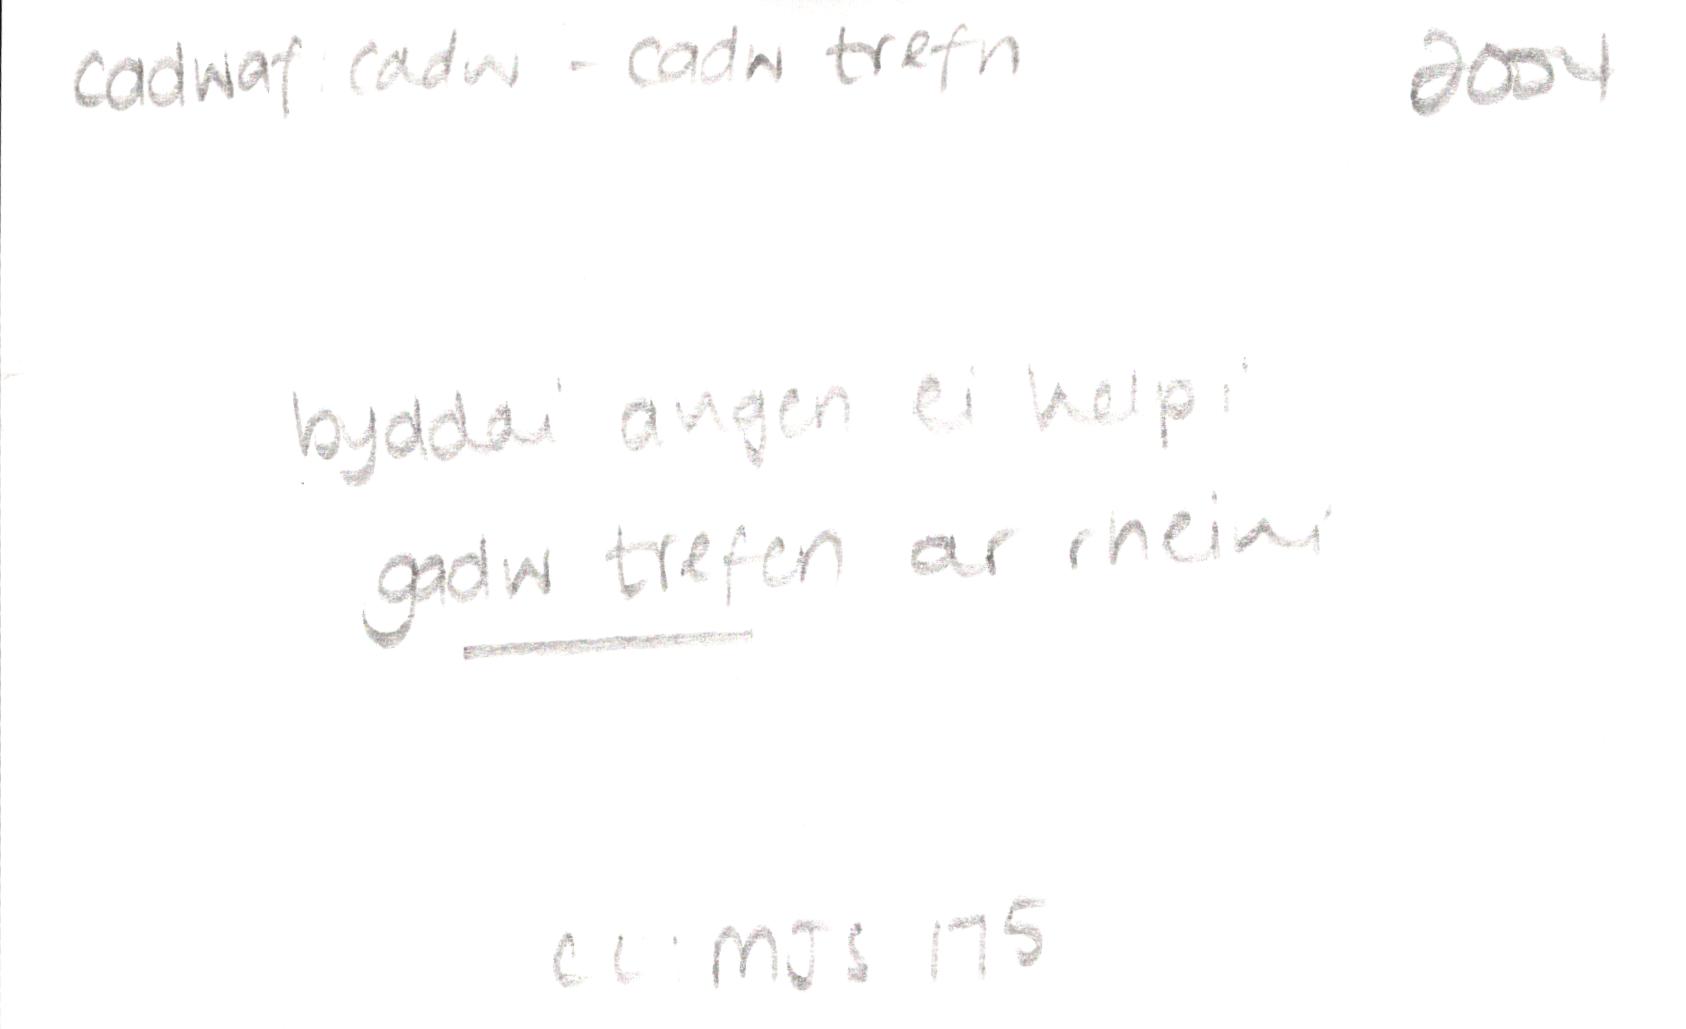 cadwaf: cadw - cadw trefn 2004
byddai angen ei help i
gadw trefen ar rheini
CC: MJS 175